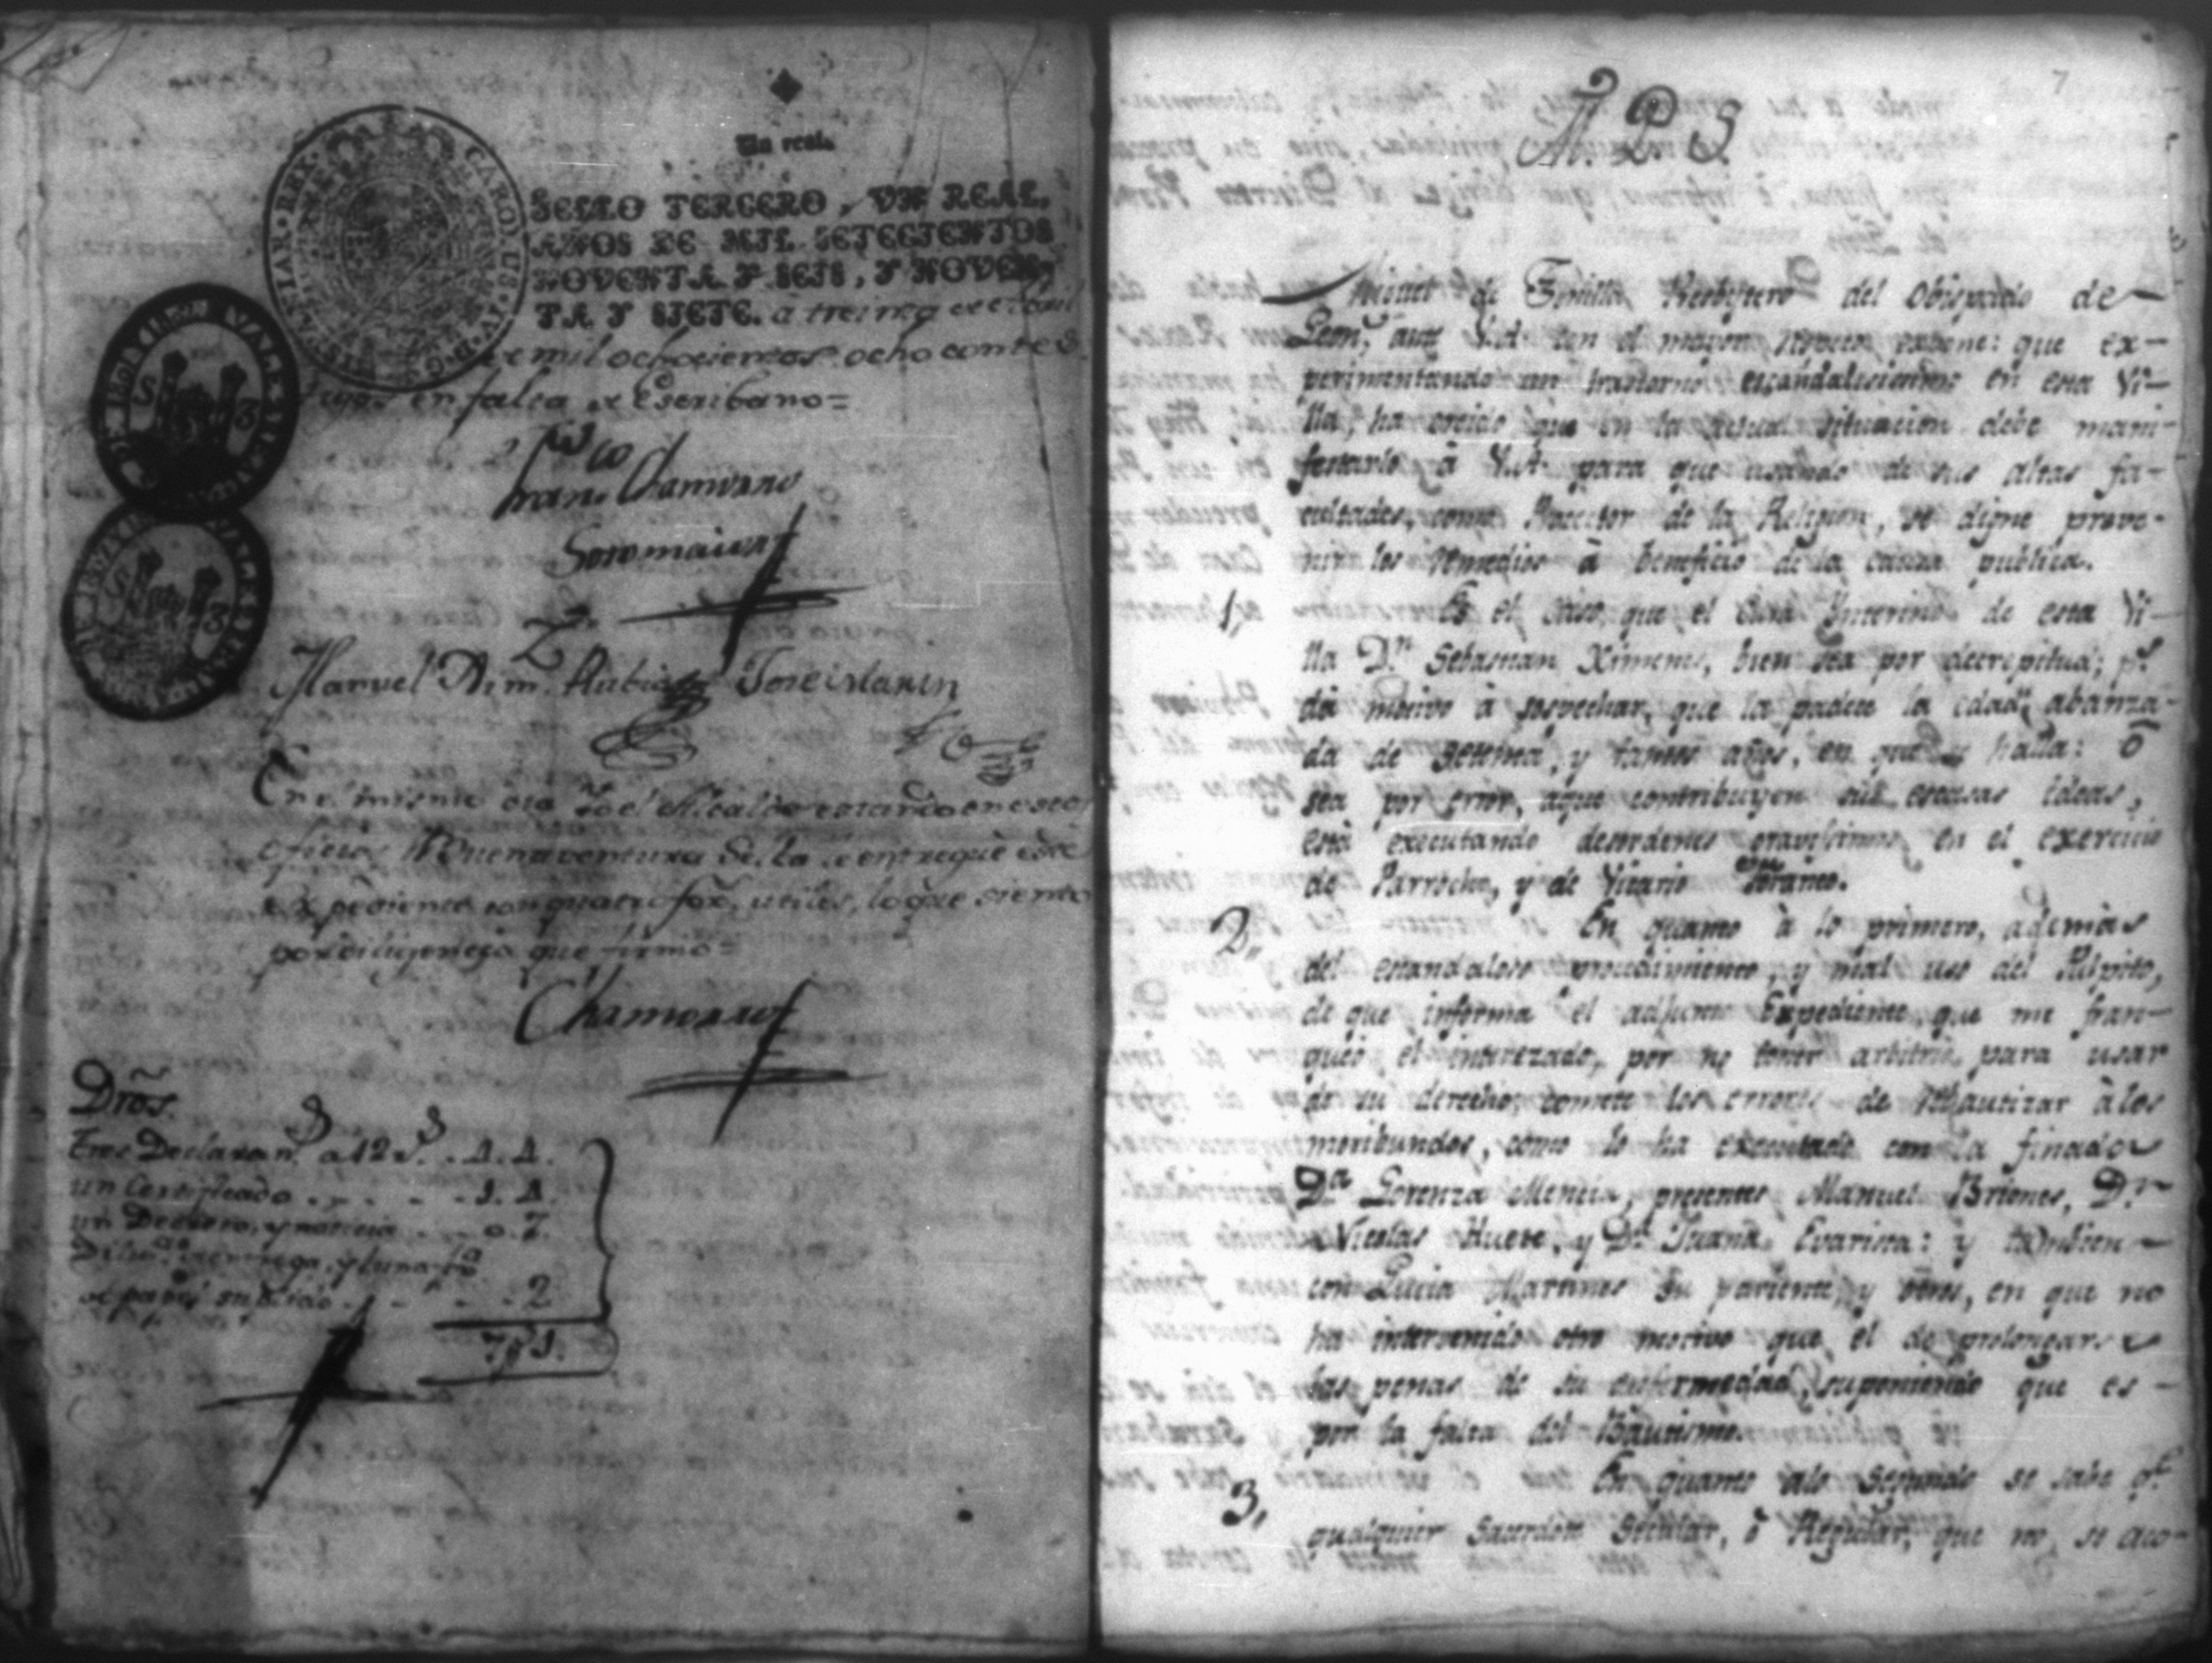 Un real.
SELLO TERCERO, UN REAL,
AÑOS DE MIL SETECIENTOS
NOVENTA Y SEIS, Y NOVEN-
TA Y SIETE. a treinta de Abril
de mil ochocientos ocho con tes
tigos en falta de Escribano=
CAROLUS IV D.G. HISPANIAR REX
Fran.co Chamorro
Sotomaior
Manuel Ant.o Rubia
Jose Marin
En el mismo dia Yo el Alcalde estando en este
oficio Buenaventura de entregué este
Expediente con quatro fox.s utiles, lo que siento
por diligencia que firmo=
Chamorro
Dros.
Tres Declaran.s a 12 r.s . 4. 4.
un Certificado . . . . . 1. 4.
un Decreto, y noticia . . . 0. 7.
Dilig.a entrega, y
de papel suplido . . . . 2
7 p.s 1.
7
M. P. S.
Miguel de Presbytero del Obispado de
ante V.A. con el mayor respeto expone: que ex-
perimentando un trastorno escandalicisimo en esta Vi-
lla, ha creido que en la actual situacion debe mani-
festarlo à V.A. para que usando de sus altas fa-
cultades, como Protector de la Religion, se digne preve-
nir los remedios à beneficio de la causa publica.
1, Es el caso, que el Cura Ynterino de esta Vi-
lla D.n Sebastian Ximenes, bien sea por decrepitud; p.s
dà motivo à sospechar, que la padece la edad abanza-
da de setenta, y tantos años, en que se halla: ò
sea por error, aque contribuyen sus escasas ideas,
està executando desordenes gravisimos en el exercicio
de Parrocho, y de Vicario Foraneo.
2, En quanto à lo primero, ademàs
del escandaloso procedimiento, y mal uso del Pulpito,
de que informa el adjunto Expediente, que me fran-
queó el interezado, por no tener arbitrio para usar
de su derecho, comete los errores de rebautizar àlos
moribundos, como lo ha executado con la finada
D.a Lorenza Mencia, presentes Manuel Briones, D.n
Nicolas Huete, y D.a Juana Evarista: y tambien
con Lucia Martines su parienta, y otros, en que no
ha intervenido otro motivo que el de prolongarse
las penas de su enfermedad, suponiendo que es
por la falta del Bautismo.
3, En quanto alo Segundo se sabe q.e
qualquier Sacerdote Secular, ò Regular, que no se aco-